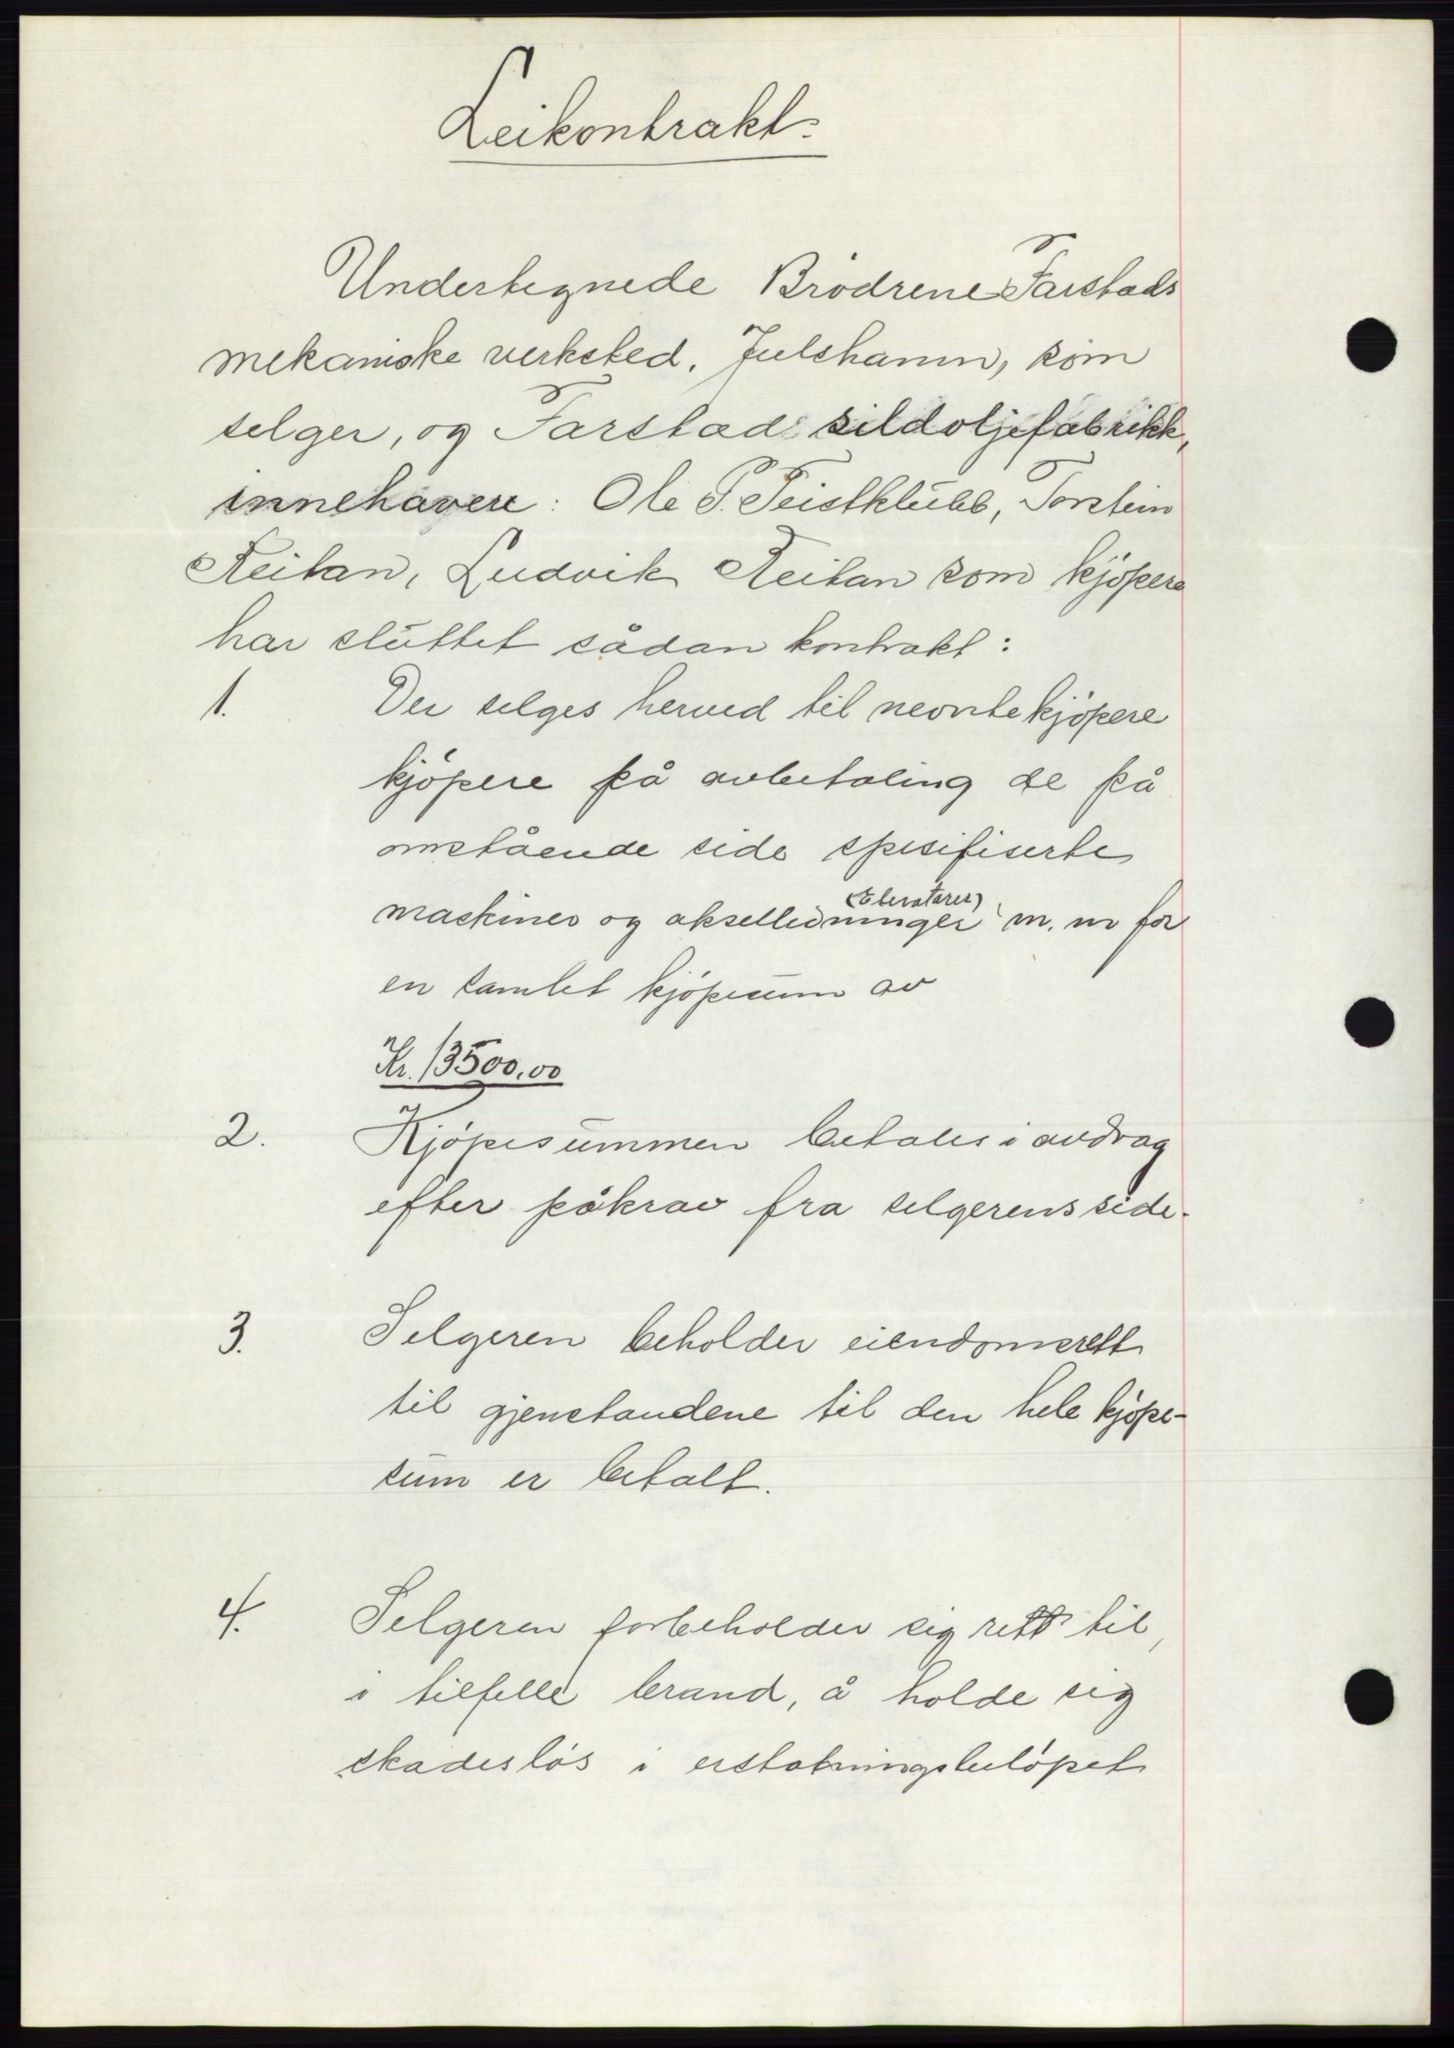 Leikontrakt.
Undertegnede Brödrene Farstads
mekaniske verksted, Julshamn, som
selger, og Farstad sildoljefabrikk,
innehavere: Ole P. Teistklubb, Torstein
Reitan, Ludvik Reitan som kjöpere
har sluttet sådan kontrakt:
1. Der selges herved til nevnte kjöpere
kjöpere på avbetaling de på
omstående side spesifiserte
(Elevatorer)
maskiner og akselledninger m.m for
en samlet kjöpesum av
Kr. 13500,00
2. Kjöpesummen betales i avdrag
efter påkrav fra selgerens side.
3. Selgeren beholder eiendomsrett
til gjenstandene til den hele kjöpe-
sum er betalt.
4. Selgeren forbeholder sig rett til,
i tilfelle brand, å holde sig
skadeslös i erstatningsbelöpet